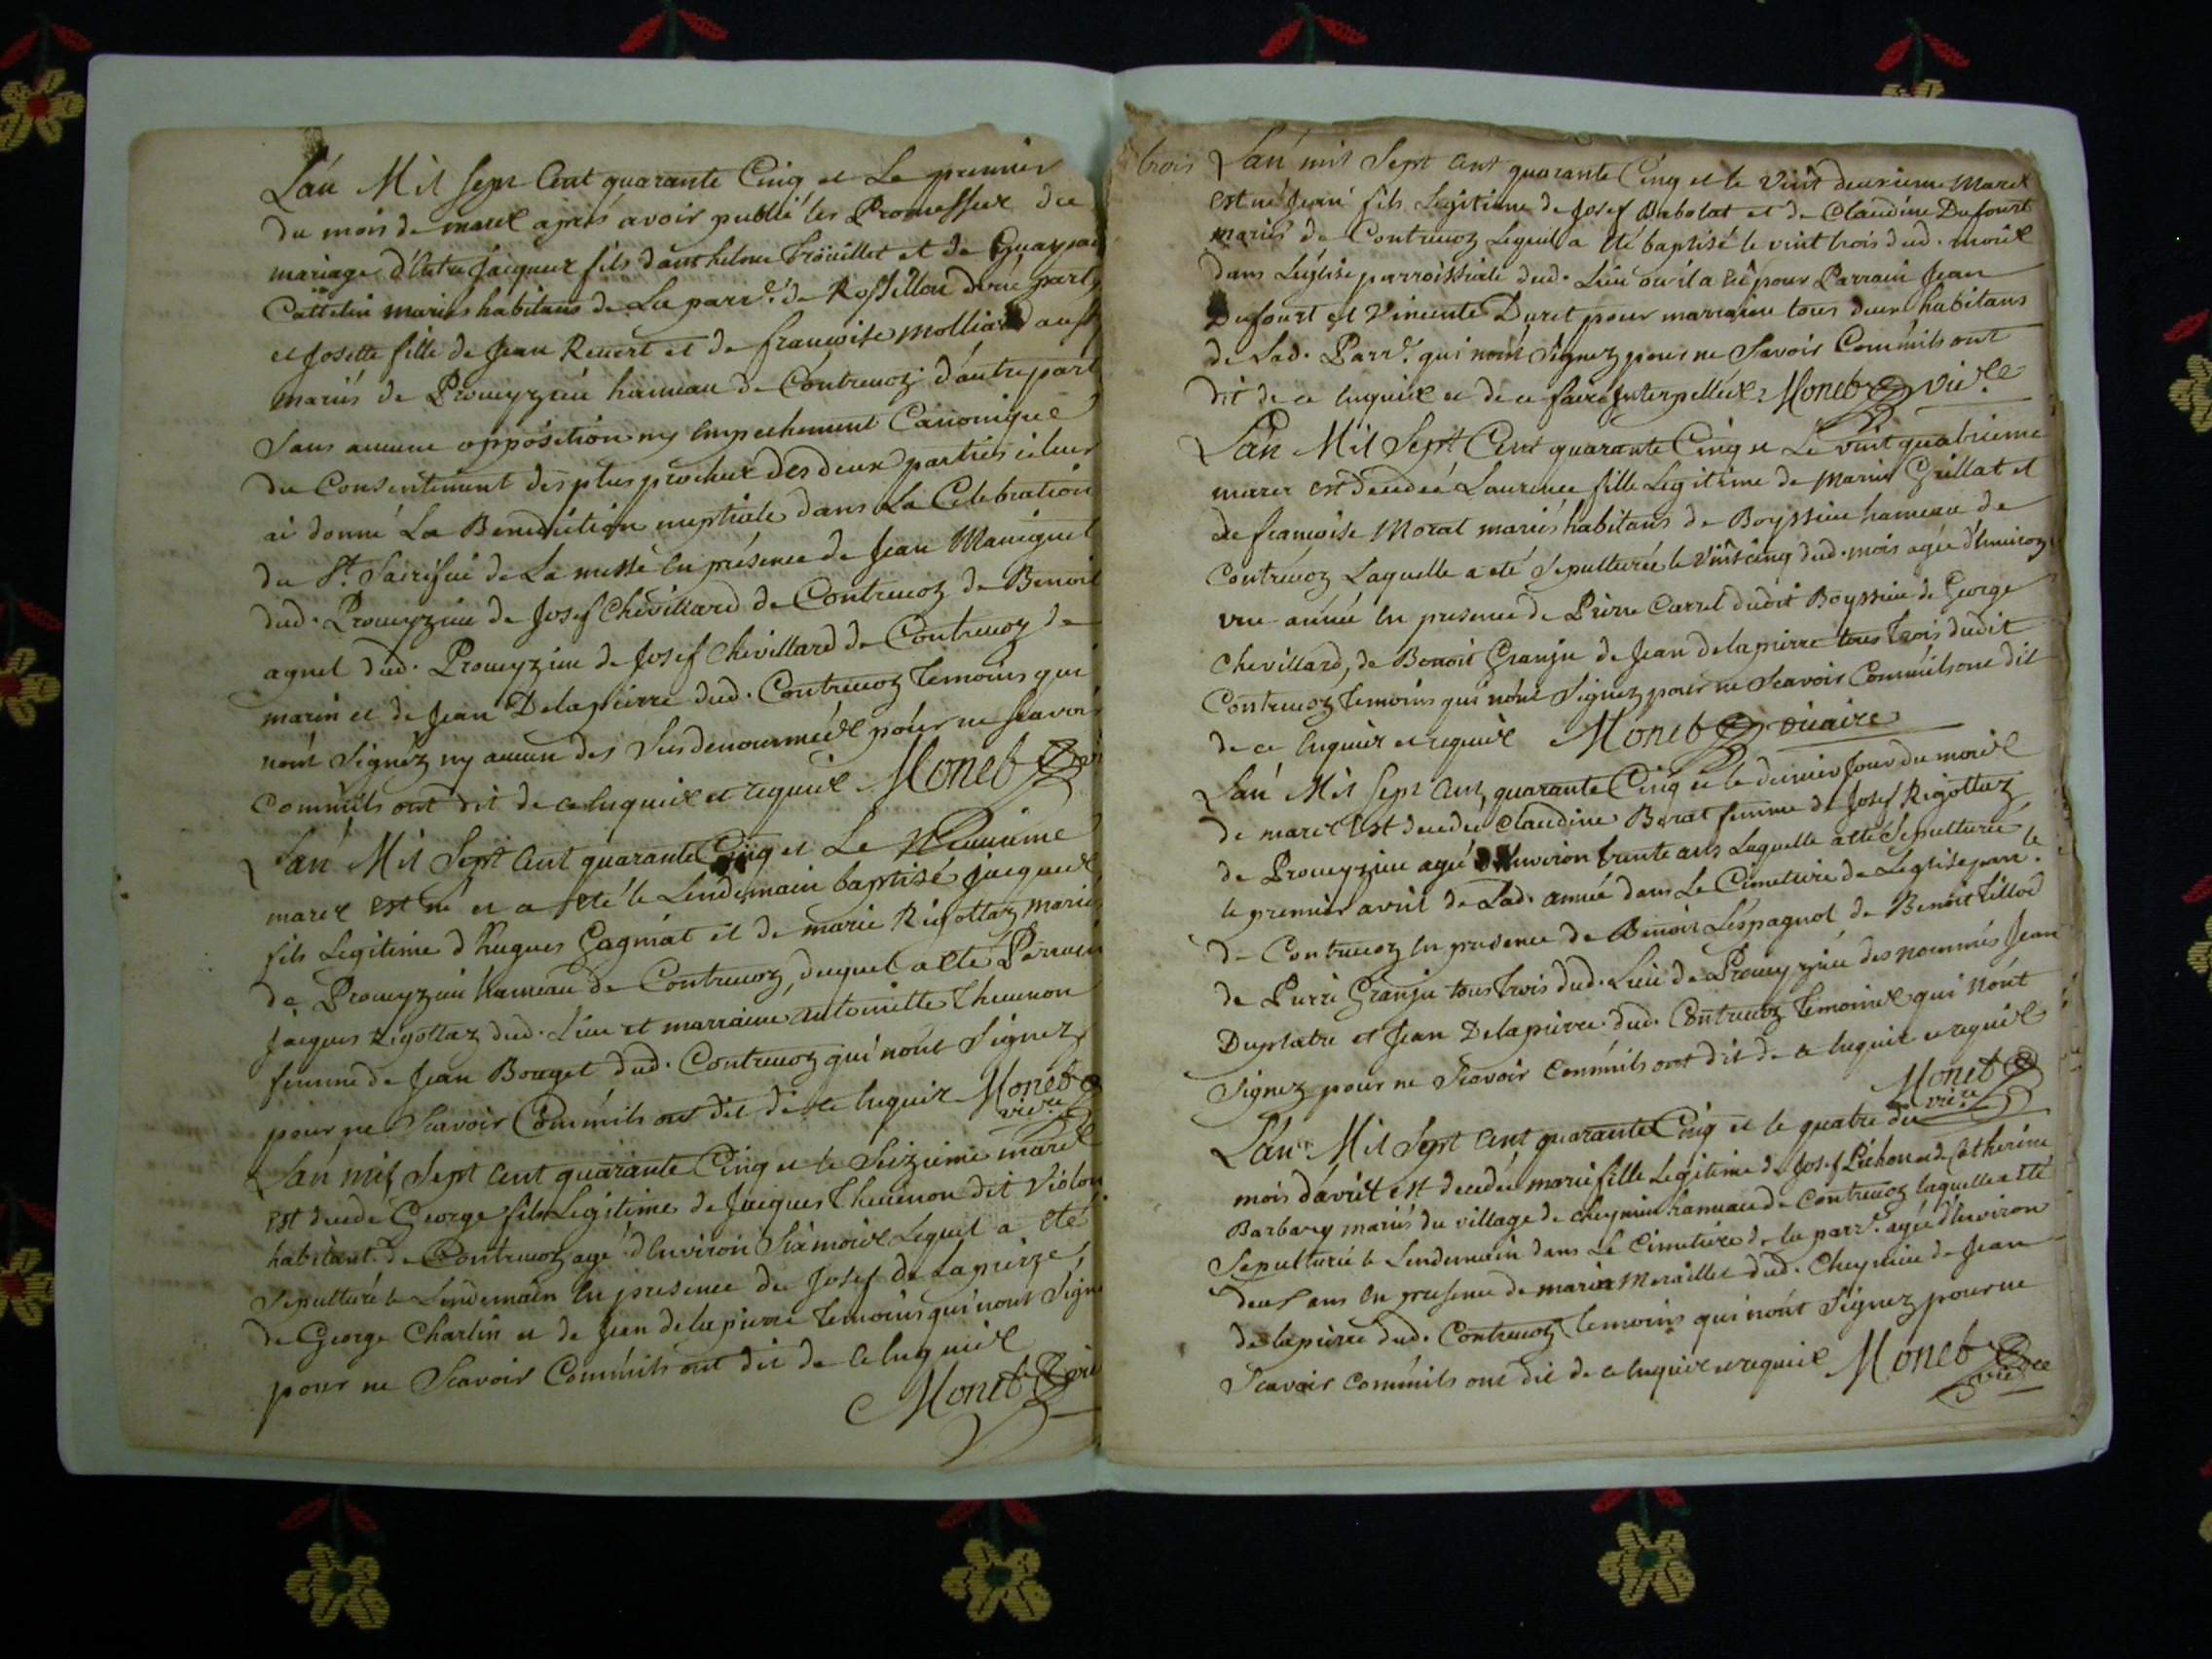 L'an Mil sept Cent quarante Cinq et Le premier
du mois de mars aprés avoir publié les Promesses de
mariage d'Entre Jacques fils d'anthelme Troüillet et de
Cattelin mariés habitans de La parr.e de Rossillon d'une part
et Josette fille de Jean Revert et de francoise molliard aussy
mariés de Proueyzieu hameau de Contreuoz d'autre part
Sans aucune opposition ny Empechement Canonique
du Consentement des plus proches des deux parties je leur
ai donné La Benediction nuptiale dans La Celebration
du St. Sacrifice de La messe En présence de Jean Maniguet
dud. Proueyzieu de Josef Chevillard de Contreuoz de Benoit
agnel dud. Proueyzieu de Josef Chevillard de Contreuoz de
marin et de Jean Delapierre dud. Contreuoz Temoins qui
n'ont Signéz ny aucun des Susdenommées pour ne Scavoir
Comm'ils ont dit de ce Enquis et requis Monet
L'an Mil Sept Cent quarante Cinq et Le Neuvieme
mars Est né et a Eté le Lendemain baptisé jacques
fils Legitime d'hugues Gagniat et de marie Rigottaz mariés
de Proueyzieu hameau de Contreuoz, duquel a Eté Parrain
Jacques Rigottaz dud. Lieu et marraine antoinette Theuenon
femme de Jean Bouget dud. Contreuoz qui n'ont Signez
pour ne Scavoir Comm'ils ont dit de ce Enquis Monet
vic.re
L'an mil Sept Cent quarante Cinq et le Seizieme mars
Est decedé George fils Legitime de Jacques Theuenon dit Violon
habitant de Contreuoz agé d'Environ Six mois Lequel a Eté
Sepulturé le Lendemain En presence de Josef de Lapierre,
de George Charlin et de Jean delapierre Temoins qui n'ont Signé
pour ne Scavoir Comm'ils ont dit de ce Enquis
Monet vic
trois
L'an mil Sept Cent quarante Cinq et le Vint deuxieme Mars
Est né Jean fils Legitime de Josef Babolat et de Claudine Dufourt
mariés de Contreuoz Lequel a Eté baptisé le vint trois dud. mois
dans L'eglise parroissiale dud. Lieu ou il a Eu pour Parrain Jean
Dufourt et Vincente Duret pour marraine tous deux habitans
de Lad. Parr.e qui n'ont Signez pour ne Savoir Comm'ils ont
dit de ce Enquis et de ce faire Interpellés Monet vic.re
L'an Mil Sept Cent quarante Cinq et Le vint quatrieme
mars est decedée Laurence fille Legitime de Marin Grillat et
de francoise Morat mariés habitans de Boyssieu hameau de
Contreuoz Laquelle a eté Sepulturée le Vint cinq dud. mois agée d'Environ
une année En presence de Pierre Carrel dudit Boyssieu de George
Chevillard, de Benoit Granju de Jean delapierre tous Trois dudit
Contreuoz Temoins qui n'ont Signez pour ne Scavoir Comm'ils ont dit
de ce Enquis et requis Monet vicaire
L'an Mil Sept Cent quarante Cinq et le dernier Jour du mois
de mars Est decedée Claudine Borat femme de Josef Rigottaz
de Proueyzieu agée d'Environ trente ans Laquelle a Eté Sepulturée
le premier avril de Lad. année dans Le Cimetiere de L'eglise parr.le
de Contreuoz En presence de Benoit L'espagnol de Benoit Tillod
de Pierre Granju tous Trois dud. Lieu de Proueyzieu des nommés Jean
Duplatre et Jean Delapierre dud. Contreuoz Temoins qui n'ont
Signez pour ne Scavoir Comm'ils ont dit de ce Enquis et requis
Monet
vic.re
L'an Mil Sept Cent quarante Cinq et le quatre du
mois d'avril est decedée marie fille Legitime de Josef Pichon et de Catherine
Barbary mariés du village de Cheynieu hameau de Contreuoz laquelle a Eté
Sepulturée le Lendemain dans Le Cimetiere de la parr.e agée d'Environ
deux ans En presence de marin Moraillet dud. Cheynieu de Jean
delapierre dud. Contreuoz Temoins qui n'ont Signez pour ne
Scavoir Comm'ils ont dit de ce Enquis et requis Monet
vic.re